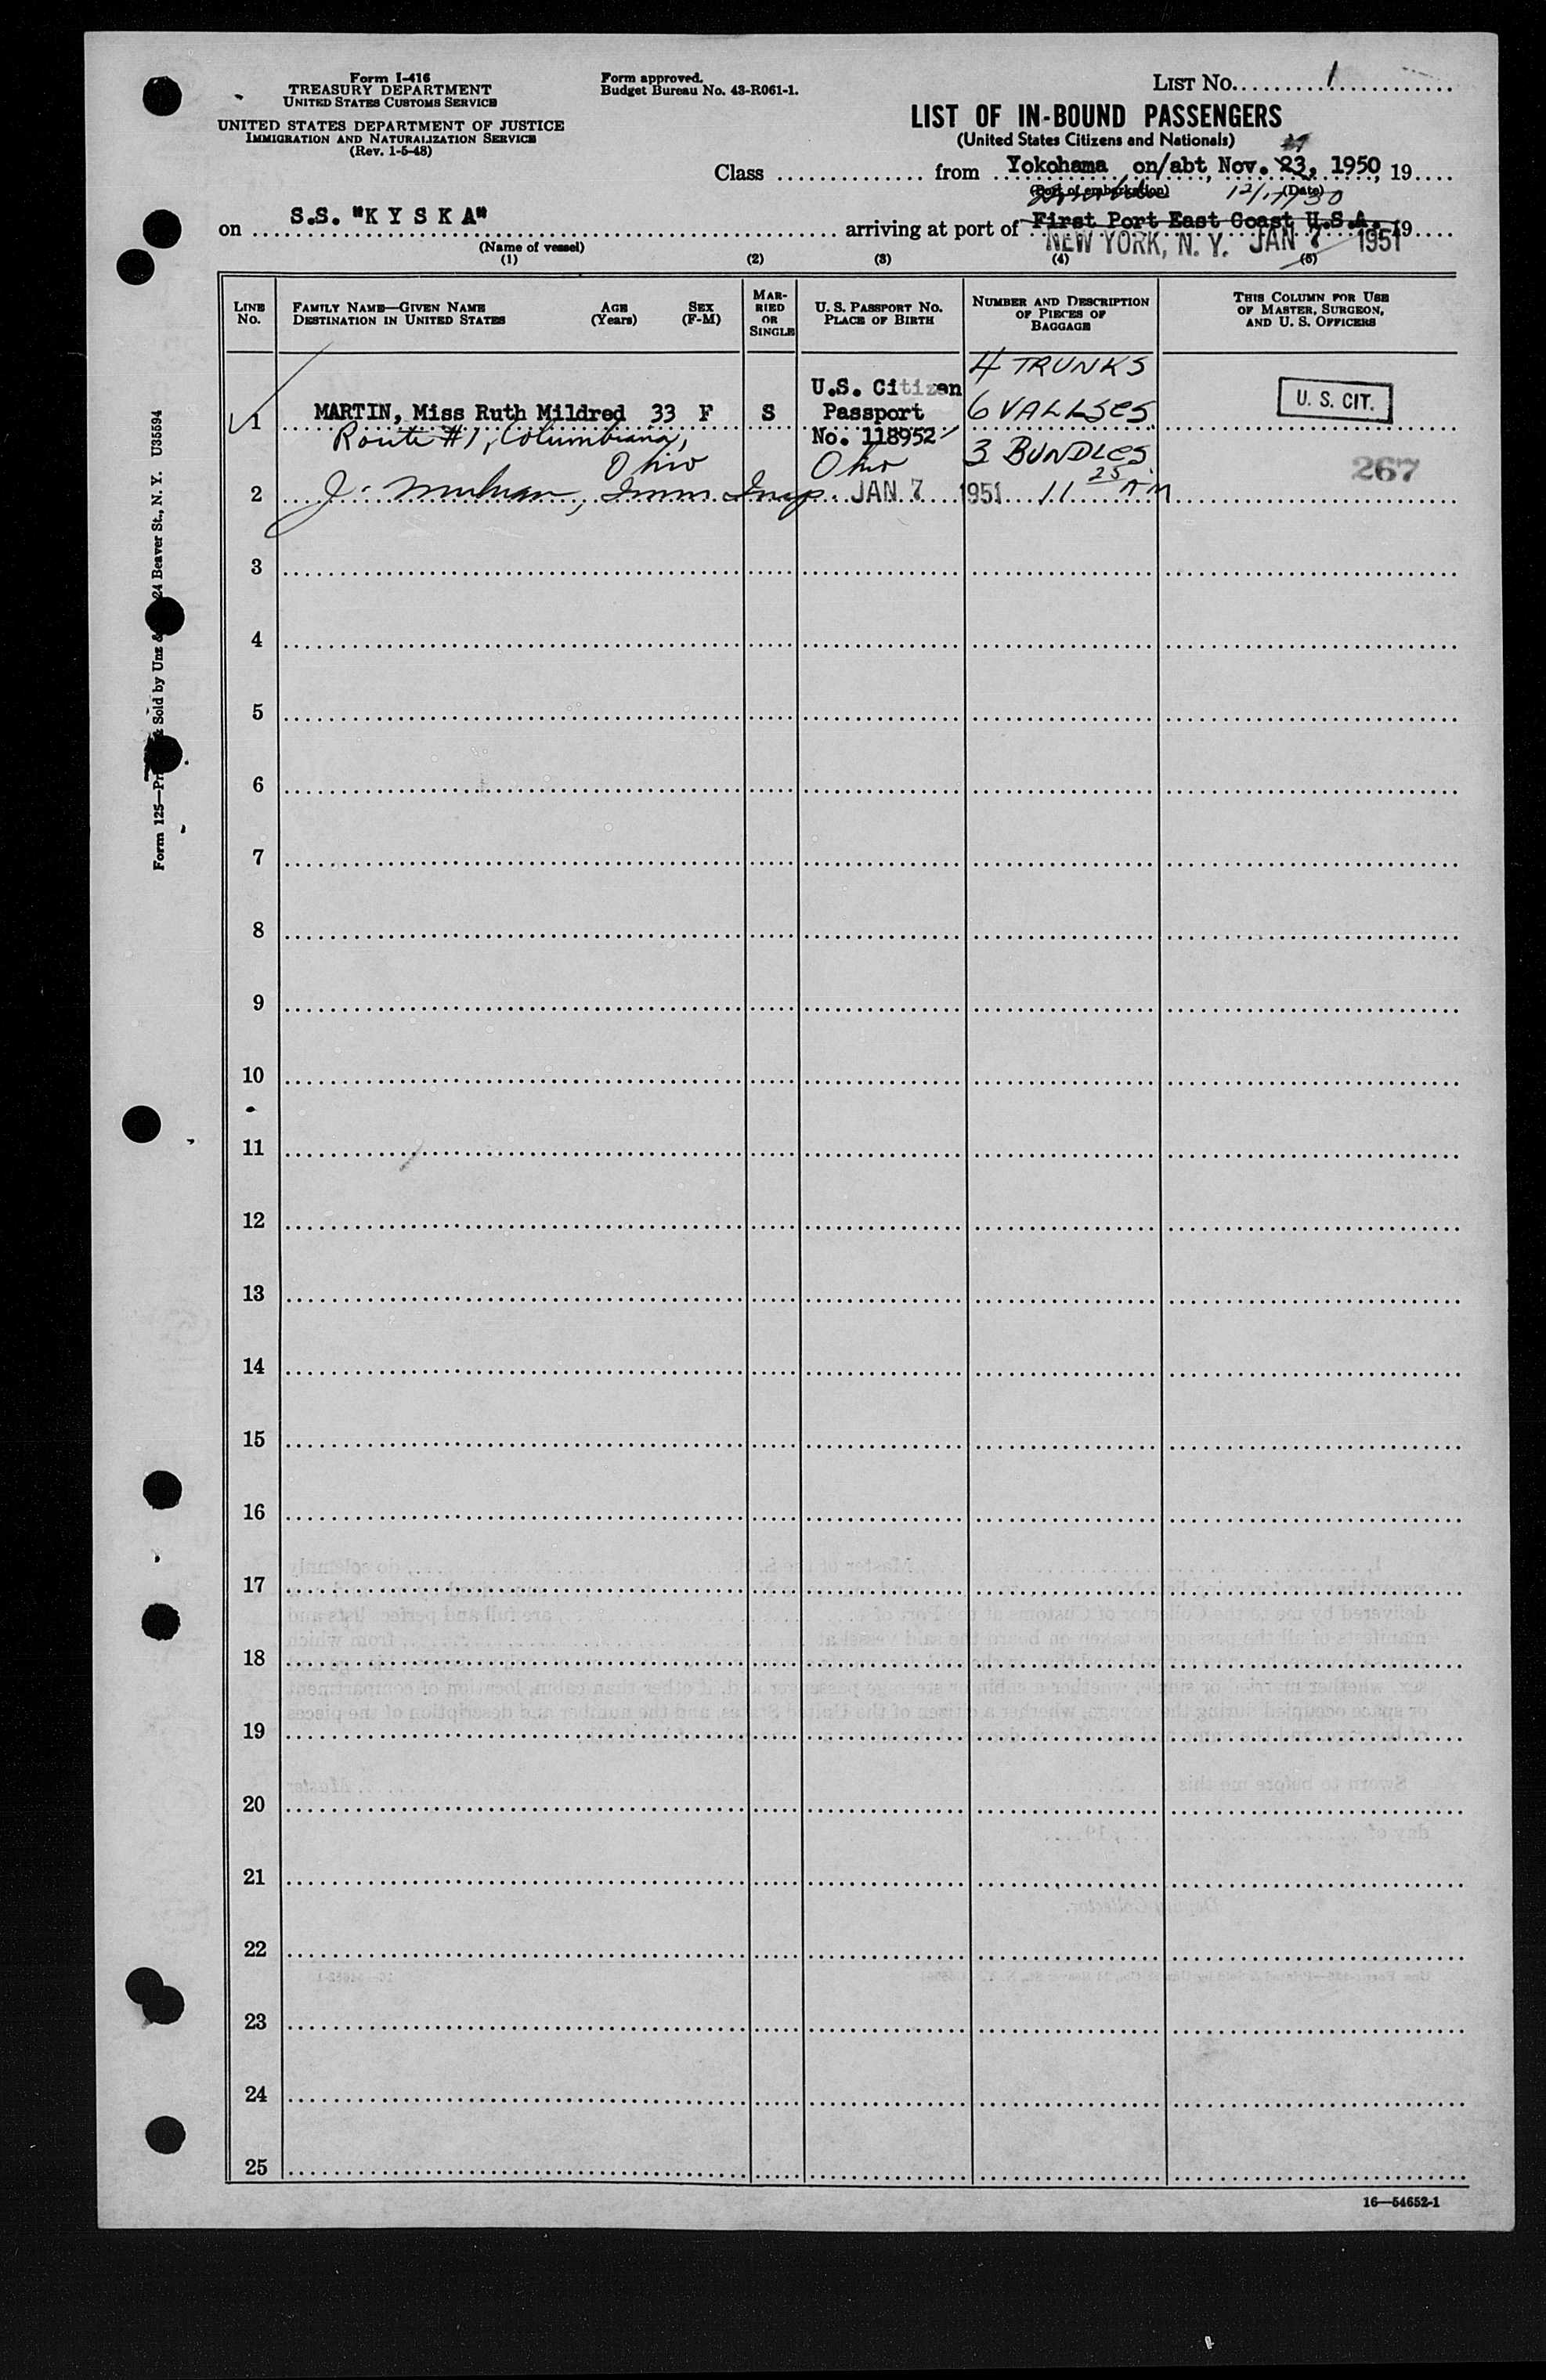 Form I-416
TREASURY DEPARTMENT
UNITED STATES CUSTOMS SERVICE
UNITED STATES DEPARTMENT OF JUSTICE
IMMIGRATION AND NATURALIZATION SERVICE
(Rev. 1-5-48)
Form approved.
Budget Bureau No. 43-R061-1.
LIST No. 1
LIST OF IN-BOUND PASSENGERS
(United States Citizens and Nationals)
Class from Yokohama on/abt, Nov. 23, 1950, 19
(Port of embarkation) (Date)
on S.S. "K Y S K A" arriving at port of First Port East Coast U.S.A. 19
(Name of vessel) NEW YORK, N. Y. JAN 7 1951
(1) (2) (3) (4) (5)
LINE No.
FAMILY NAME—GIVEN NAME AGE SEX
DESTINATION IN UNITED STATES (Years) (F-M)
MAR-
RIED
OR
SINGLE
U. S. PASSPORT No.
PLACE OF BIRTH
NUMBER AND DESCRIPTION
OF PIECES OF
BAGGAGE
THIS COLUMN FOR USE
OF MASTER, SURGEON,
AND U. S. OFFICERS
4 TRUNKS
U.S. Citizen
1 MARTIN, Miss Ruth Mildred 33 F S Passport 6 VALLSES U. S. CIT.
Route #1, Columbiana, No. 118952 3 BUNDLES
Ohio Ohio 267
2 J. Imm. Insp. JAN 7 1951 11 25 AM
3
4
5
6
7
8
9
10
11
12
13
14
15
16
17
18
19
20
21
22
23
24
25
16—54652-1
Form 125— Sold by Unz & 24 Beaver St., N. Y. U35594